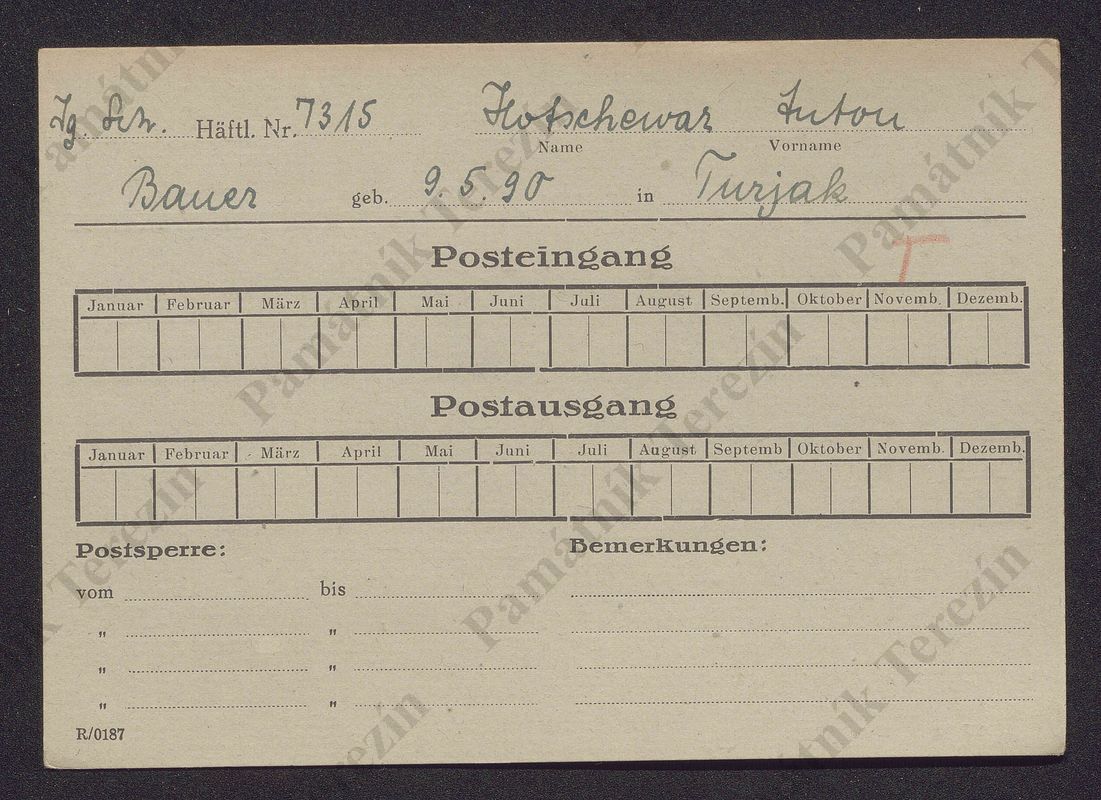 Jg. Slw. Häftl. Nr. 7315 Hotschewar Anton
Name Vorname
Bauer geb. 9.5.90 in Turjak
T
Posteingang
Januar Februar März April Mai Juni Juli August Septemb. Oktober Novemb. Dezemb.
Postausgang
Januar Februar März April Mai Juni Juli August Septemb Oktober Novemb. Dezemb.
Postsperre: Bemerkungen:
vom bis
" "
" "
" "
R/0187
Památník Terezín